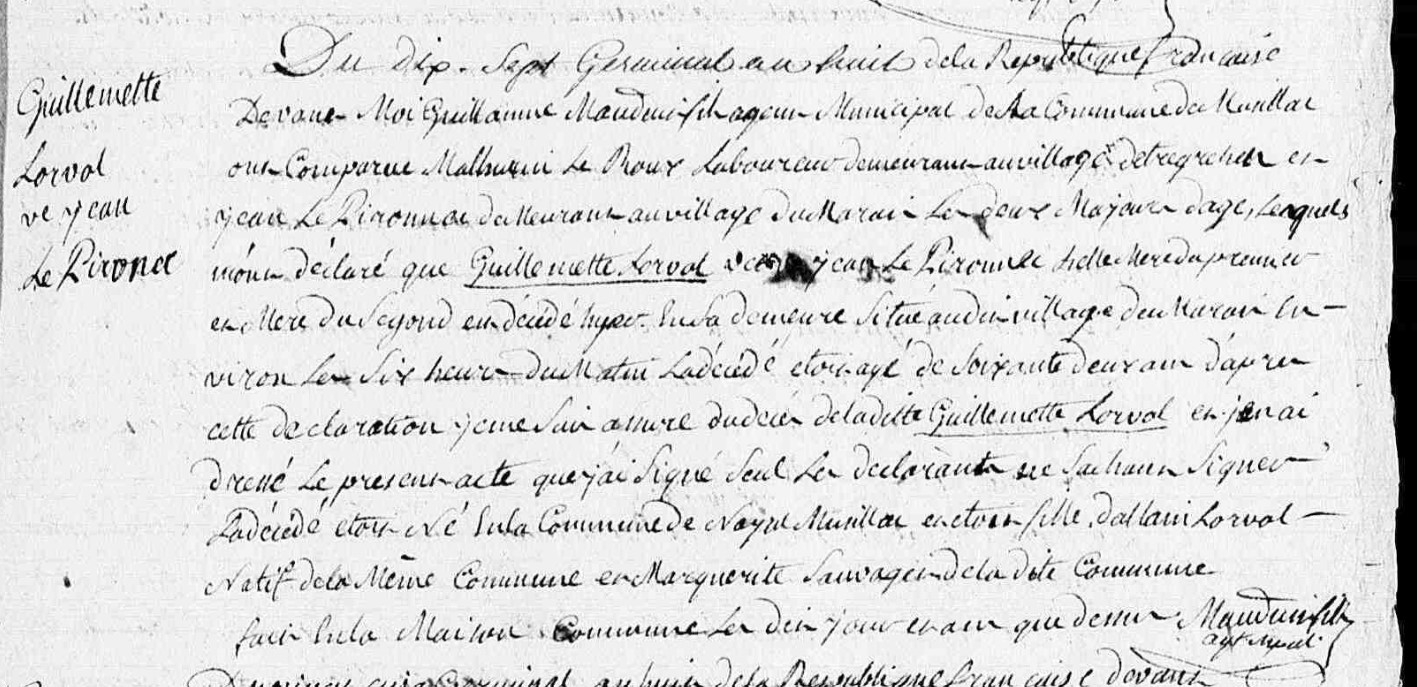 Guillemette
Lorval
ve jean
Le Pironec
Du dix-Sept Germinal an huit de la Republique francaise
Devant Moi Guillaume Mauduit fils agent Municipal de la Commune de Musillac
ont Comparue Mathurin Le Roux Laboureur demeurant au village de tregrehen et
jean Le Pironnec demeurant au village du Marais Les deux Majeurs d'age, Lesquels
m'ont déclaré que Guillemette Lorval ve jean Le Pironnec belle Mere du premier
et Mere du Segond est décédé hyer En Sa demeure Situé audit village du Marais En-
viron Les Six heures du Matin La décédé etoit agé de Soixante deux ans d'apres
cette declaration je me Suis assuré du décès de la ditte Guillemette Lorval et j'en ai
dressé Le present acte que j'ai Signé Seul Les declarants ne Sachant Signer
La décédé etoit Né En la Commune de Noyal Musillac et etoit fille d'allain Lorval
Natif de la Même Commune et Marguerite Sauvaget de la dite Commune
fait En la Maison Commune Les dits jour et an que dessus Mauduit fils
agt Mpal
an huit de la Republique francaise devant